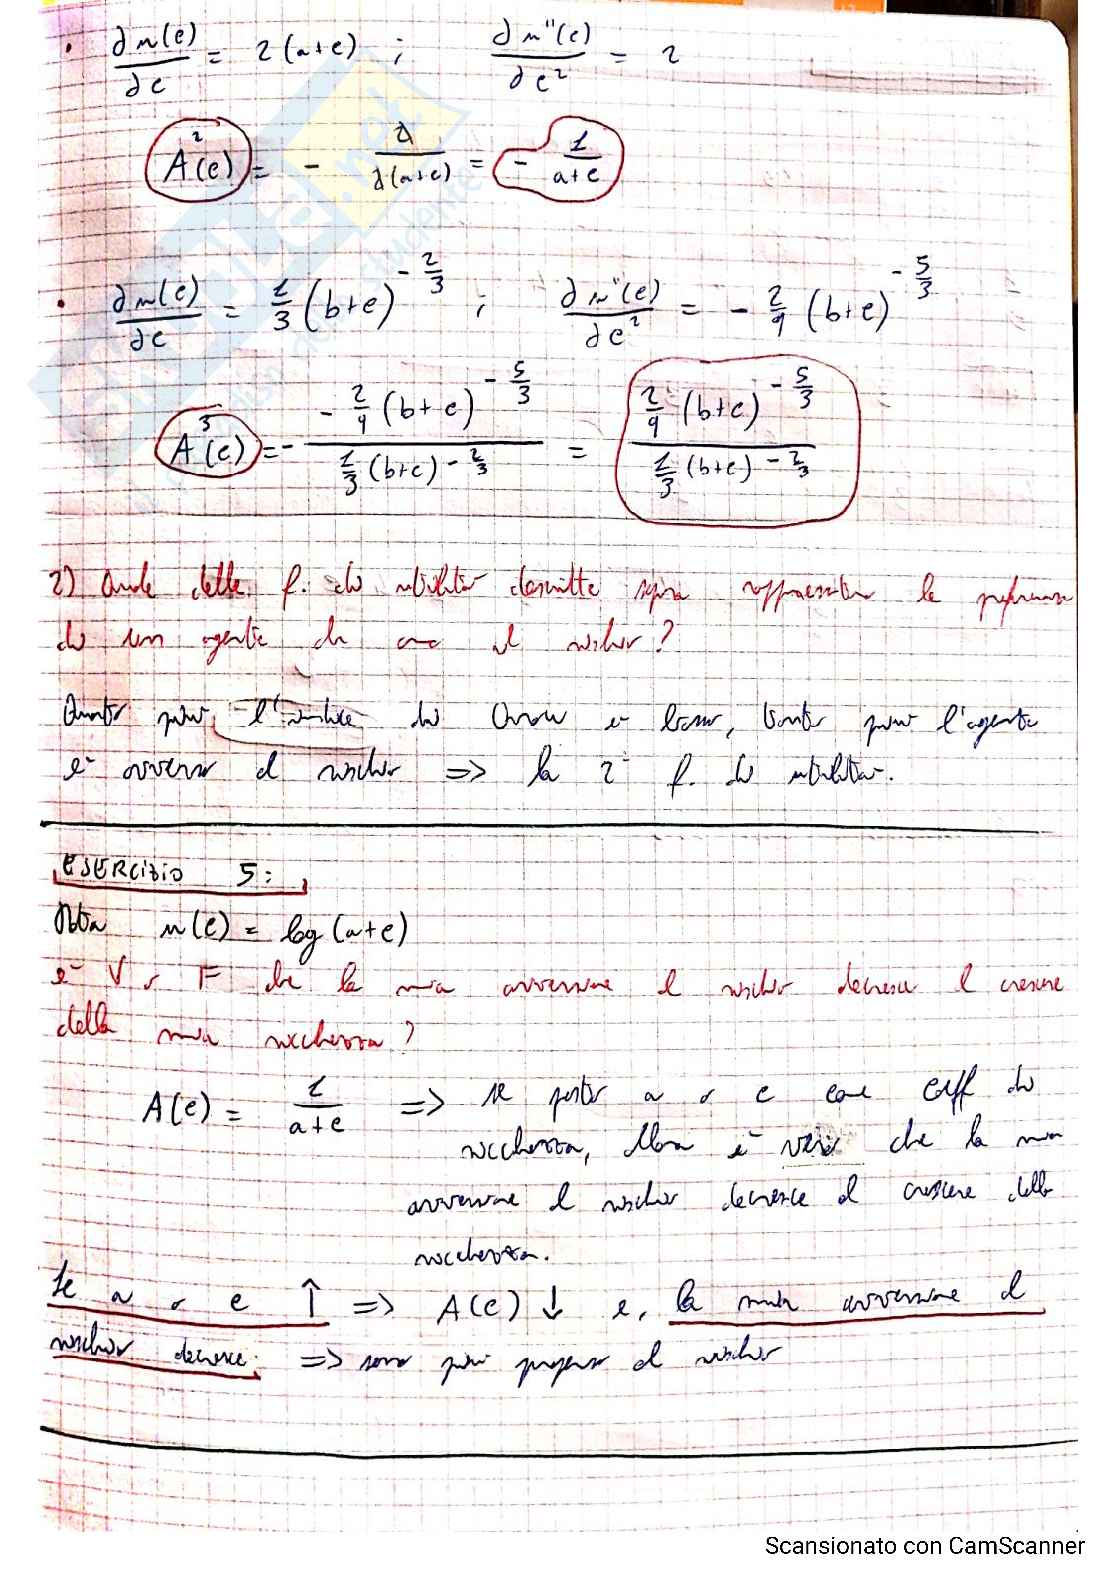 • ∂u(e)/∂e = 2(a+e) ; ∂u"(e)/∂e² = 2
A²(e) = - 2/2(a+e) = - 1/(a+e)
• ∂u(e)/∂e = 1/3 (b+e)^(-2/3) ; ∂u"(e)/∂e² = - 2/9 (b+e)^(-5/3)
A³(e) = - (- 2/9 (b+e)^(-5/3)) / (1/3 (b+e) - 2/3) = (2/9 (b+e)^(-5/3)) / (1/3 (b+e) - 2/3)
2) Quale delle f. di utilità descritte sopra rappresenta le preferenze
di un agente che ama il rischio?
Quanto più l'indice di Arrow è basso, tanto più l'agente
è avverso al rischio => la 2ª f. di utilità.
ESERCIZIO 5:
Data u(e) = log(a+e)
è V o F che la mia avversione al rischio decresce al crescere
della mia ricchezza?
A(e) = 1/(a+e) => se a o e come coeff di
ricchezza, allora è vero che la mia
avversione al rischio decresce al crescere della
ricchezza.
Se a o e ↑ => A(e) ↓ e, la mia avversione al
rischio decresce. => sono più propenso al rischio
Scansionato con CamScanner